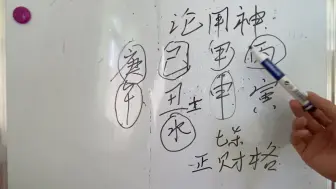 论用神
庚 己 甲 丙
午 丑土 申 寅
水
七杀
正财格